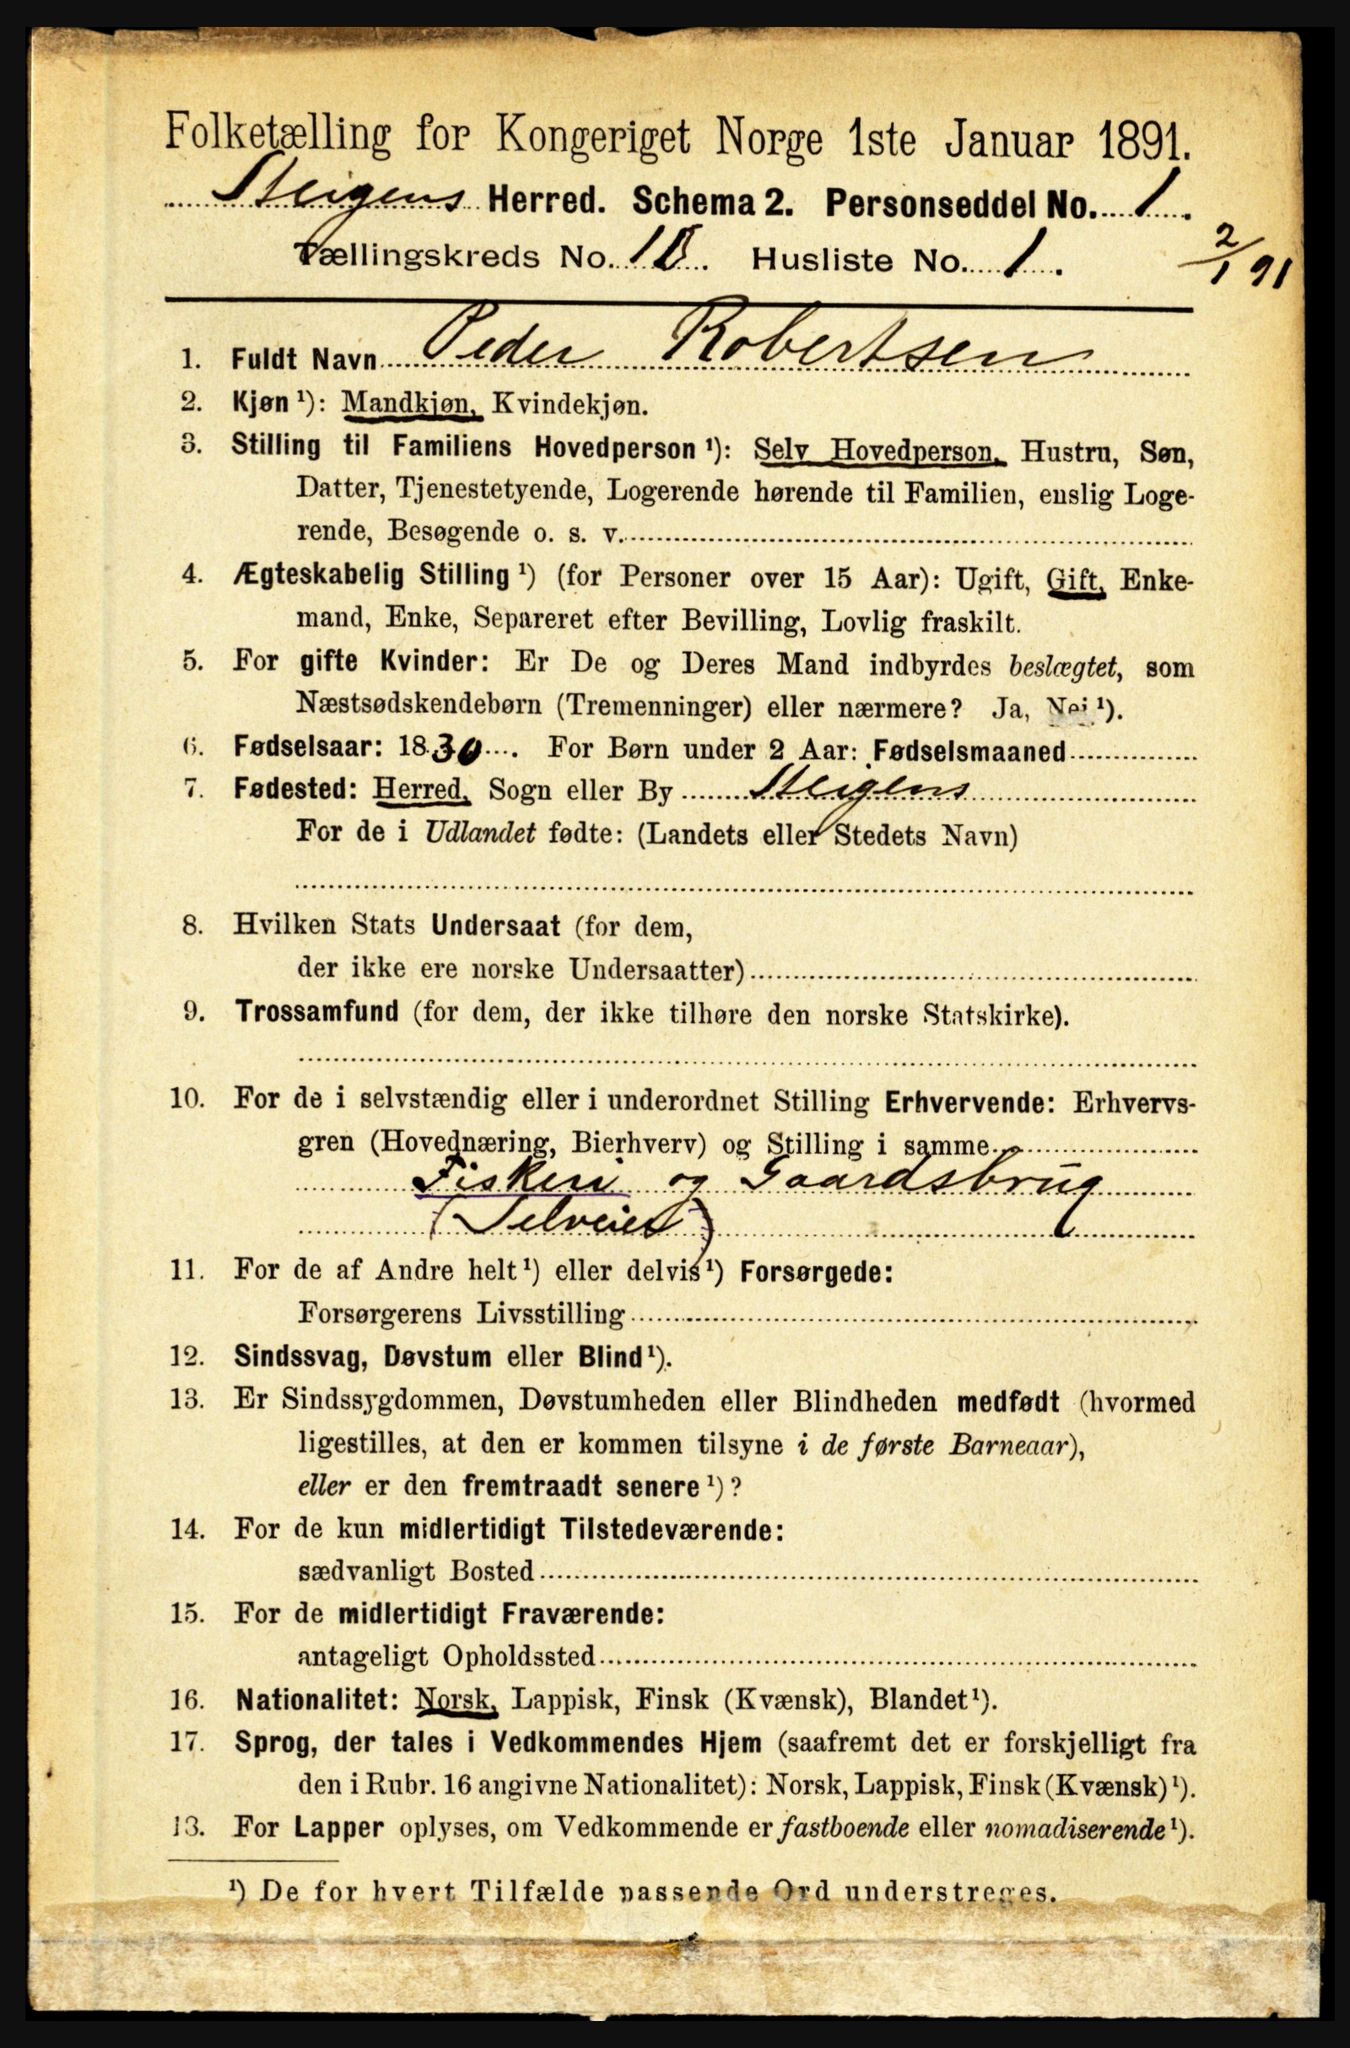 Folketælling for Kongeriget Norge 1ste Januar 1891.
Steigens Herred. Schema 2. Personseddel No. 1.
Tællingskreds No. 10. Husliste No. 1.
2/1 91
1. Fuldt Navn Peder Robertsen
2. Kjøn ¹): Mandkjøn, Kvindekjøn.
3. Stilling til Familiens Hovedperson ¹): Selv Hovedperson, Hustru, Søn,
Datter, Tjenestetyende, Logerende hørende til Familien, enslig Loge-
rende, Besøgende o. s. v.
4. Ægteskabelig Stilling ¹) (for Personer over 15 Aar): Ugift, Gift, Enke-
mand, Enke, Separeret efter Bevilling, Lovlig fraskilt.
5. For gifte Kvinder: Er De og Deres Mand indbyrdes beslægtet, som
Næstsødskendebørn (Tremenninger) eller nærmere? Ja, Nei ¹).
6. Fødselsaar: 1830. For Børn under 2 Aar: Fødselsmaaned
7. Fødested: Herred, Sogn eller By Steigens
For de i Udlandet fødte: (Landets eller Stedets Navn)
8. Hvilken Stats Undersaat (for dem,
der ikke ere norske Undersaatter)
9. Trossamfund (for dem, der ikke tilhøre den norske Statskirke).
10. For de i selvstændig eller i underordnet Stilling Erhvervende: Erhvervs-
gren (Hovednæring, Bierhverv) og Stilling i samme
Fiskeri og Gaardsbrug
(Selveier)
11. For de af Andre helt ¹) eller delvis ¹) Forsørgede:
Forsørgerens Livsstilling
12. Sindssvag, Døvstum eller Blind ¹).
13. Er Sindssygdommen, Døvstumheden eller Blindheden medfødt (hvormed
ligestilles, at den er kommen tilsyne i de første Barneaar),
eller er den fremtraadt senere ¹)?
14. For de kun midlertidigt Tilstedeværende:
sædvanligt Bosted
15. For de midlertidigt Fraværende:
antageligt Opholdssted
16. Nationalitet: Norsk, Lappisk, Finsk (Kvænsk), Blandet ¹).
17. Sprog, der tales i Vedkommendes Hjem (saafremt det er forskjelligt fra
den i Rubr. 16 angivne Nationalitet): Norsk, Lappisk, Finsk (Kvænsk) ¹).
13. For Lapper oplyses, om Vedkommende er fastboende eller nomadiserende ¹).
¹) De for hvert Tilfælde passende Ord understreges.